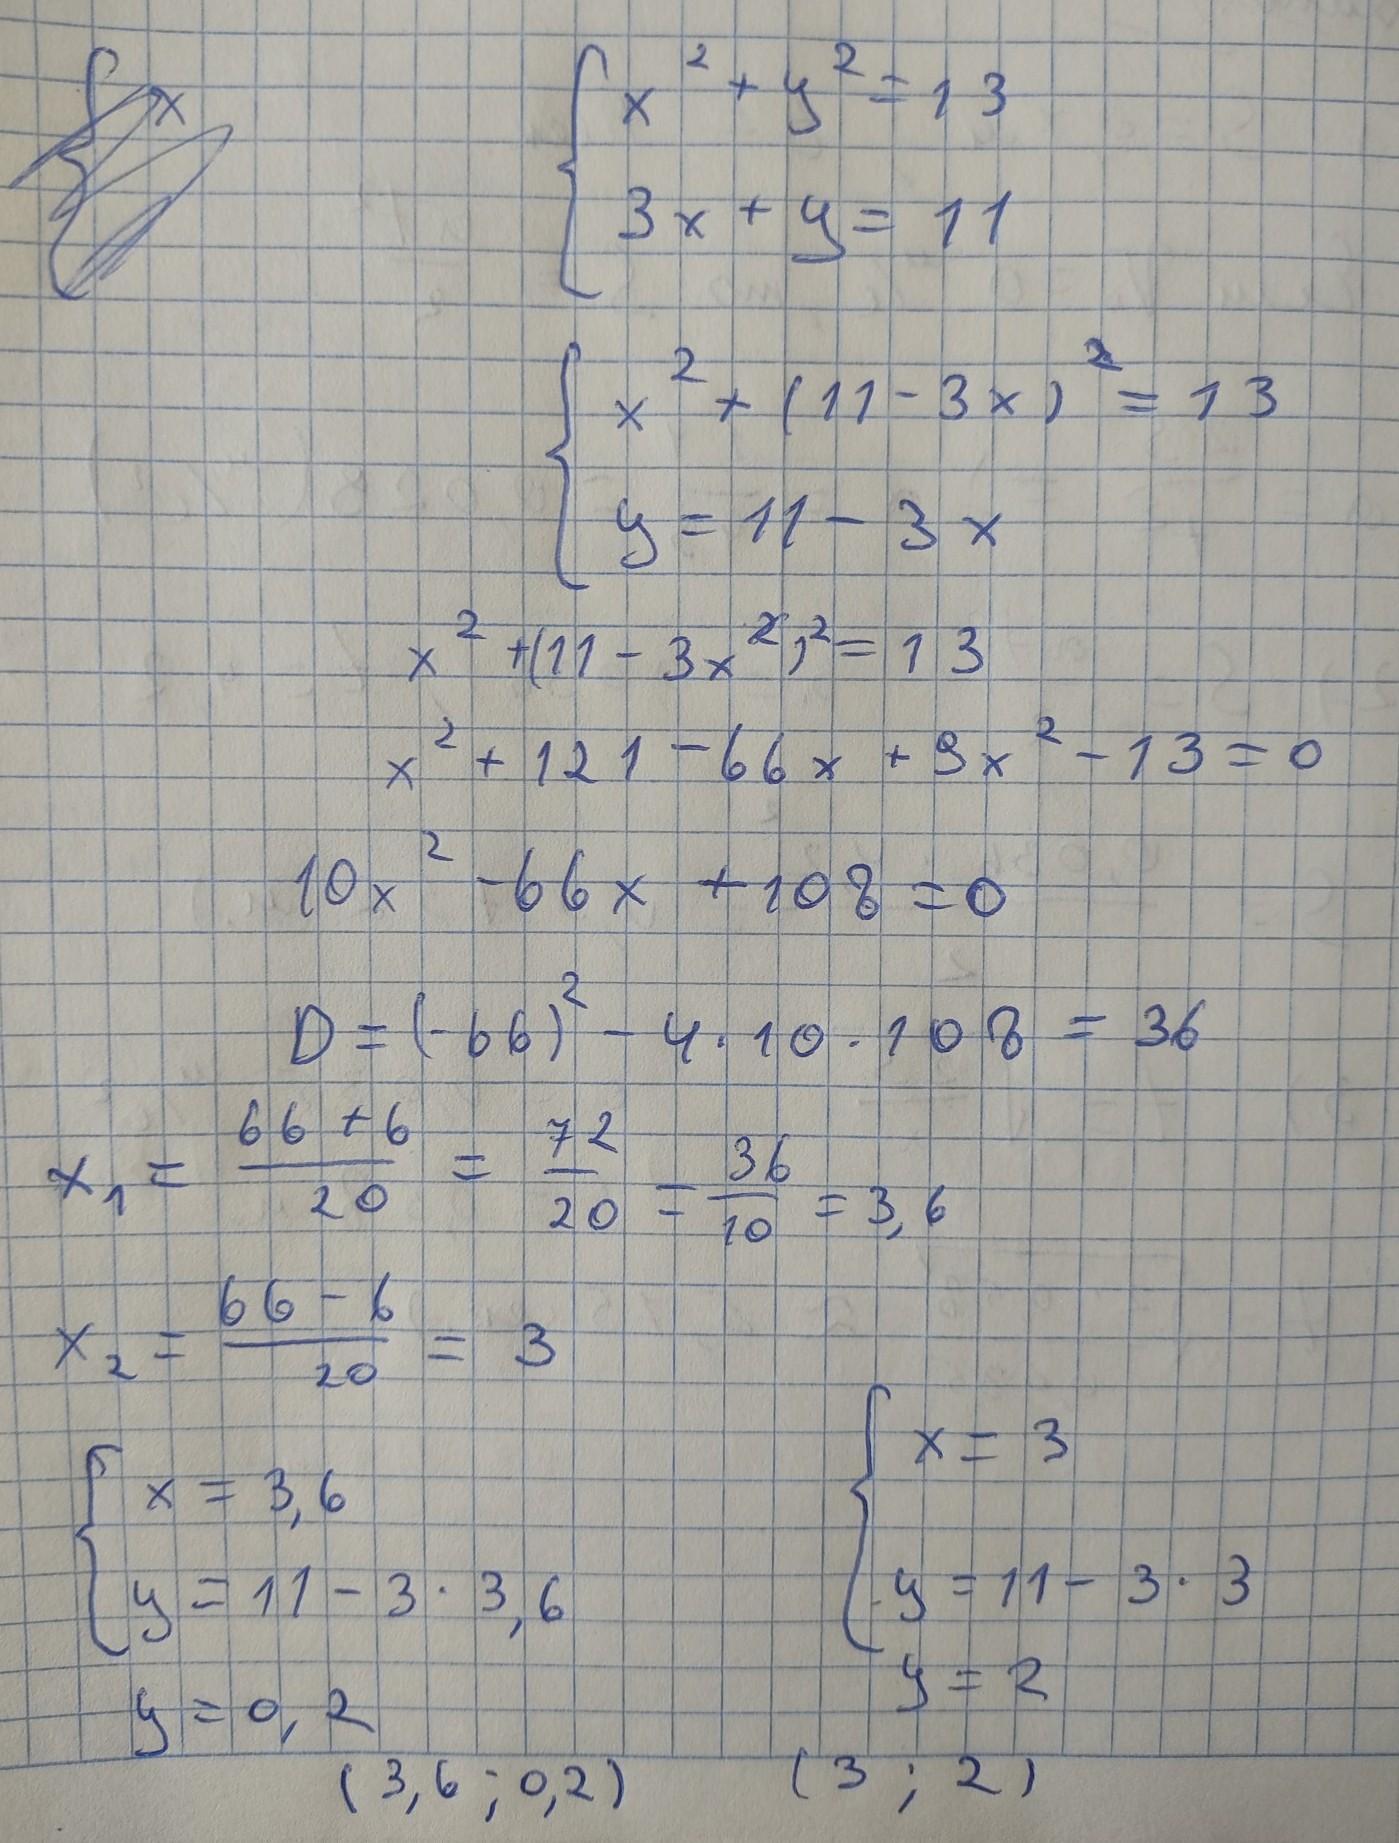 x² + y² = 13
3x + y = 11
x² + (11 - 3x)² = 13
y = 11 - 3x
x² + (11 - 3x²)² = 13
x² + 121 - 66x + 9x² - 13 = 0
10x² - 66x + 108 = 0
D = (-66)² - 4 · 10 · 108 = 36
x₁ = (66 + 6)/20 = 72/20 = 36/10 = 3,6
x₂ = (66 - 6)/20 = 3
x = 3,6
y = 11 - 3 · 3,6
y = 0,2
(3,6 ; 0,2)
x = 3
y = 11 - 3 · 3
y = 2
(3 ; 2)